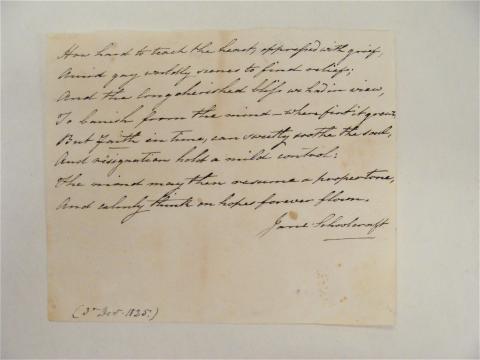 How hard to teach the heart, opprefsed with grief,
Amid gay worldly scenes to find relief;
And the long cherished blifs we had in view,
To banish from the mind—where first it grew,
But Faith in time, can sweetly soothe the soul,
And resignation hold a mild control;
The mind may then resume a proper tone,
And calmly think on hopes forever flown.
Jane Schoolcraft
1825.)